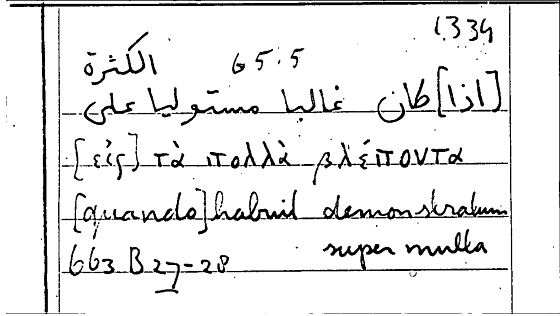 1334
الكثرة 65.5
[اذا] كان غالبا مستوليا على
[εἰς] τὰ πολλὰ βλέποντα
[quando] habuit demonstratum
super multa
663 B27-28